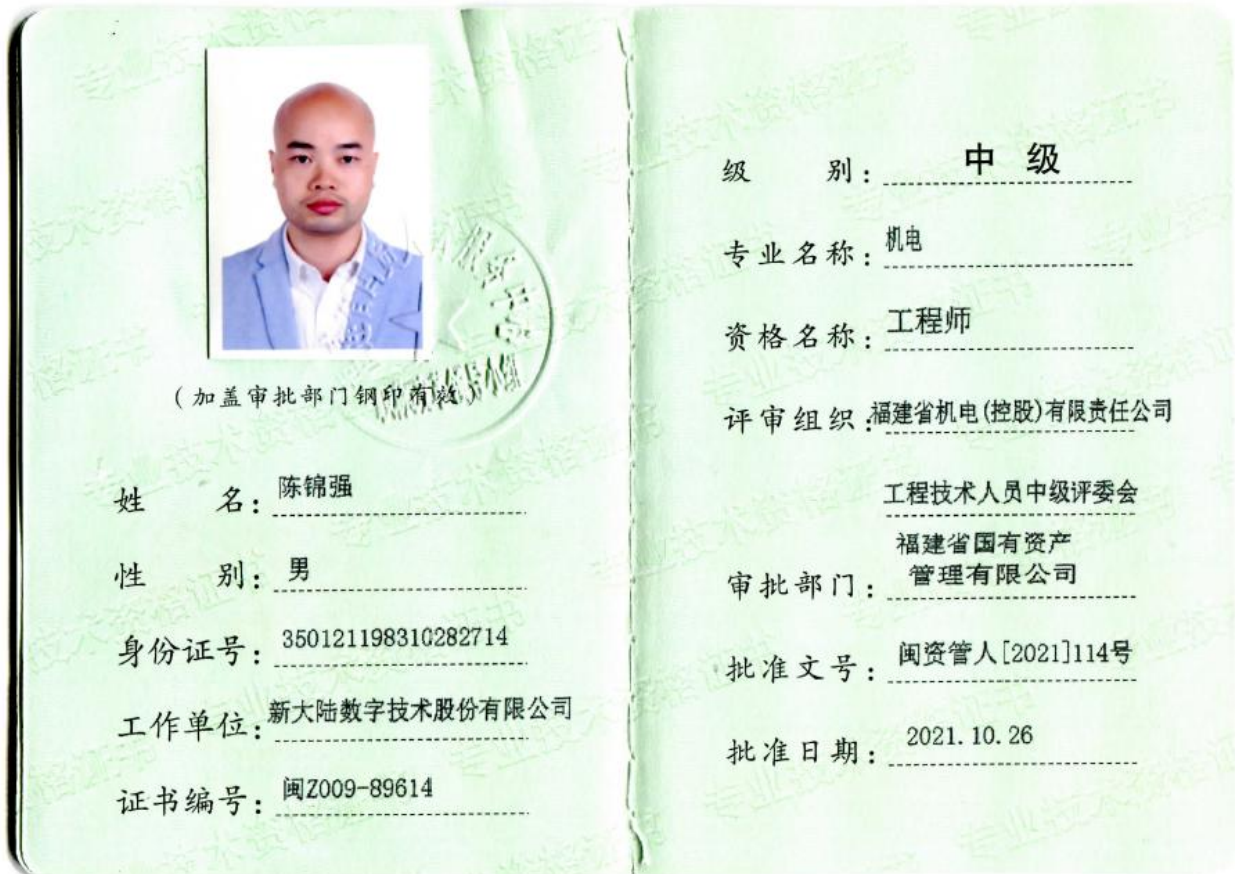 (加盖审批部门钢印有效)
姓 名: 陈锦强
性 别: 男
身份证号: 350121198310282714
工作单位: 新大陆数字技术股份有限公司
证书编号: 闽Z009-89614
级 别: 中 级
专业名称: 机电
资格名称: 工程师
评审组织: 福建省机电(控股)有限责任公司
工程技术人员中级评委会
福建省国有资产
审批部门: 管理有限公司
批准文号: 闽资管人[2021]114号
批准日期: 2021.10.26